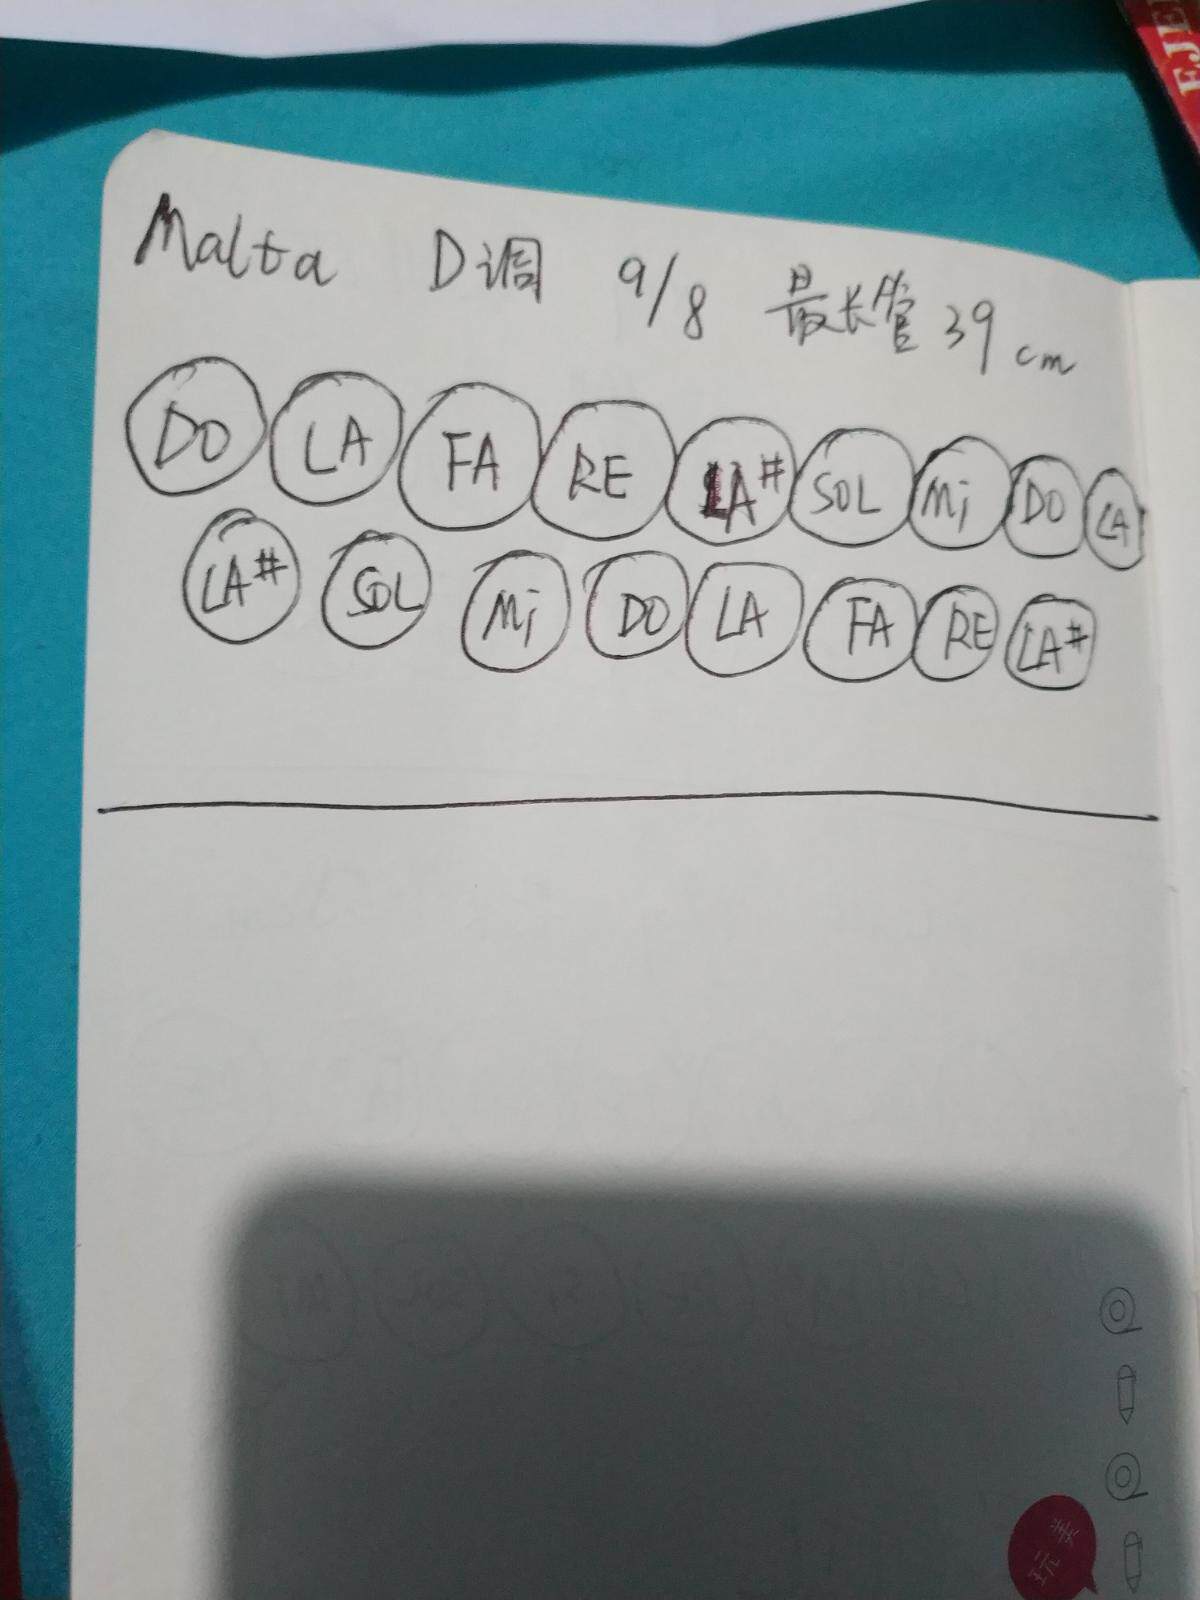 EJE
Malta D调 9/8 最长管39cm
DO LA FA RE LA# SOL Mi DO LA
LA# SOL Mi DO LA FA RE LA#